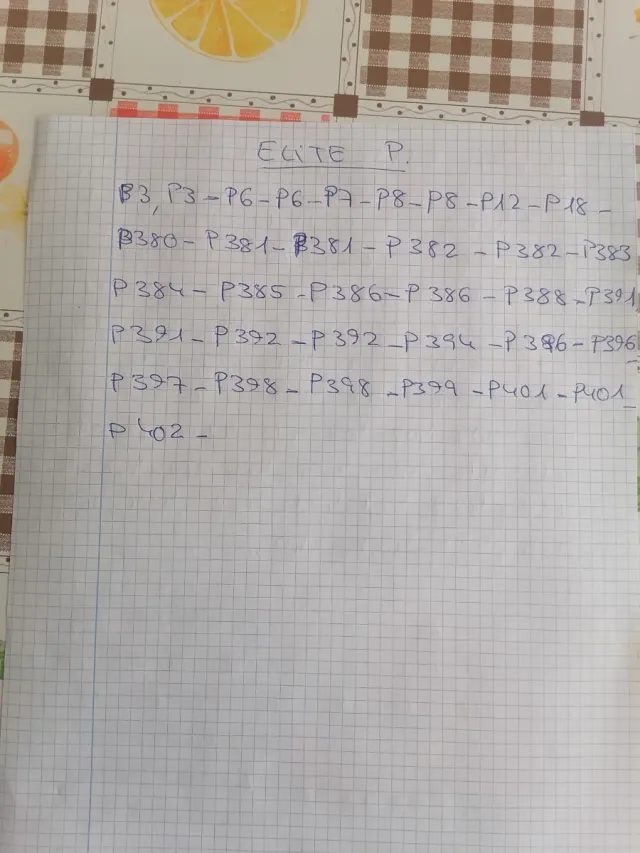 ELITE P.
P3, P3 - P6 - P6 - P7 - P8 - P8 - P12 - P18 -
P380 - P381 - P381 - P382 - P382 - P383
P384 - P385 - P386 - P386 - P388 - P391
P391 - P392 - P392 - P394 - P396 - P396
P397 - P398 - P398 - P399 - P401 - P401
P402 -